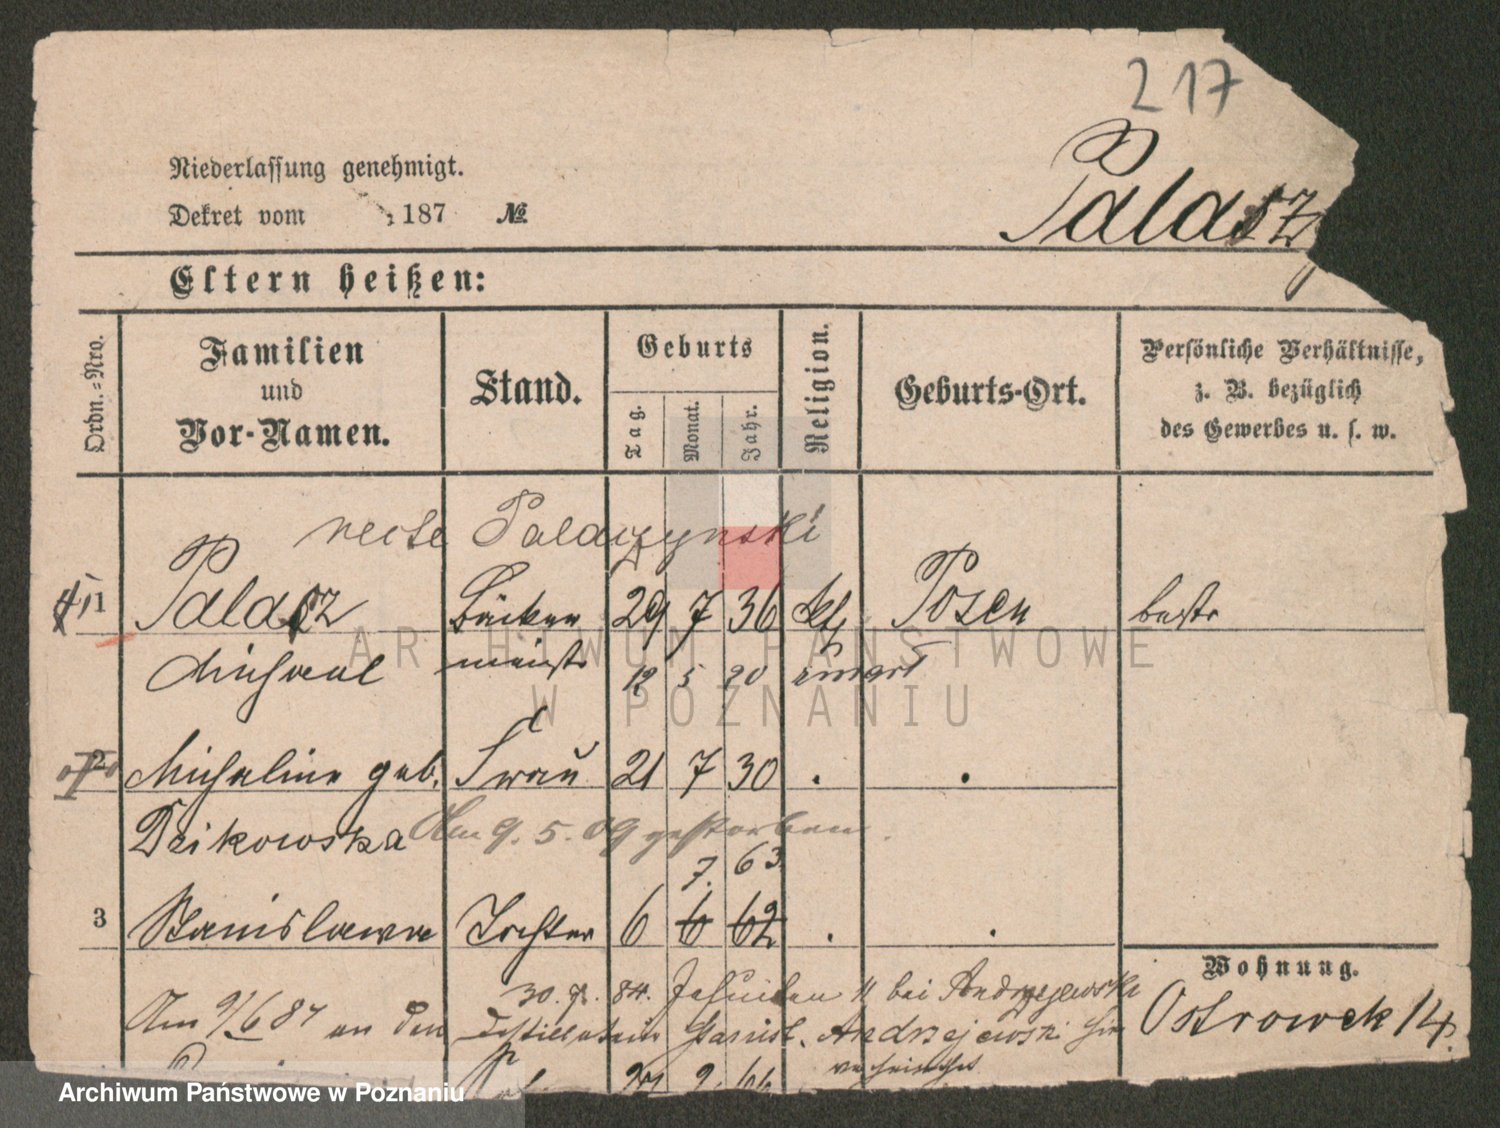 217
Niederlassung genehmigt.
Palasz
Dekret vom 187 №
Eltern heißen:
Ordn.-Nro.
Familien
und
Vor-Namen.
Stand.
Geburts
Tag.
Monat.
Jahr.
Religion.
Geburts-Ort.
Persönliche Verhältnisse,
z. B. bezüglich
des Gewerbes u. s. w.
recte Palaczynski
1 Palasz Bäcker 29 7 36 kth Posen
Michael meistr 12 5 20
2 Michaline geb. Frau 21 7 30 . .
Dzikowska Am 9. 5. 09 gestorben.
7. 63
3 Stanislawa Tochter 6 6 62 . .
Wohnung.
Ostrowek 14.
30. 9. 84. Jesuiten 11 bei Andrzejewska
Am 9/6 87 an den Destillateur Andrzejewski hier
verheirathet
ARCHIWUM PAŃSTWOWE
W POZNANIU
Archiwum Państwowe w Poznaniu